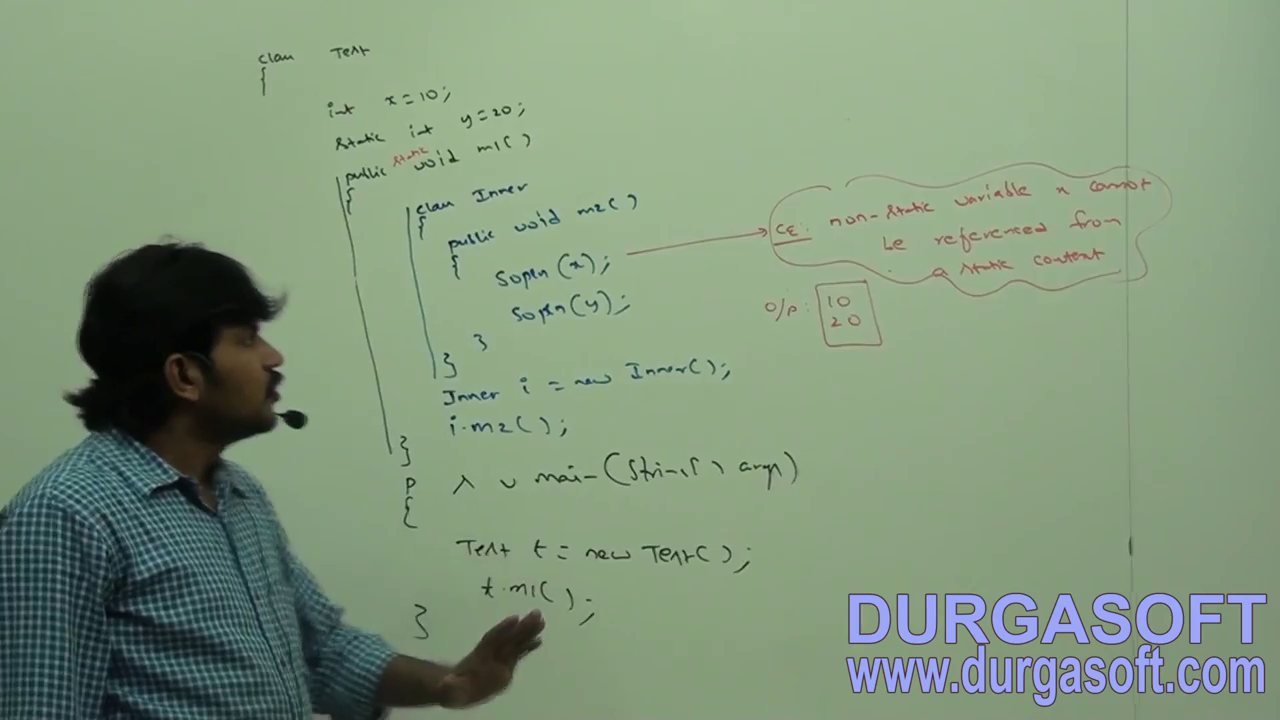 class Test
{
int x=10;
static int y=20;
public static void m1()
{
class Inner
{
public void m2()
{
Sopln(x);
Sopln(y);
}
}
Inner i = new Inner();
i.m2();
}
P s v main(String[] args)
{
Test t = new Test();
t.m1();
}
CE: non-static variable x cannot
be referenced from
a static context
O/P: 10
20
DURGASOFT
www.durgasoft.com